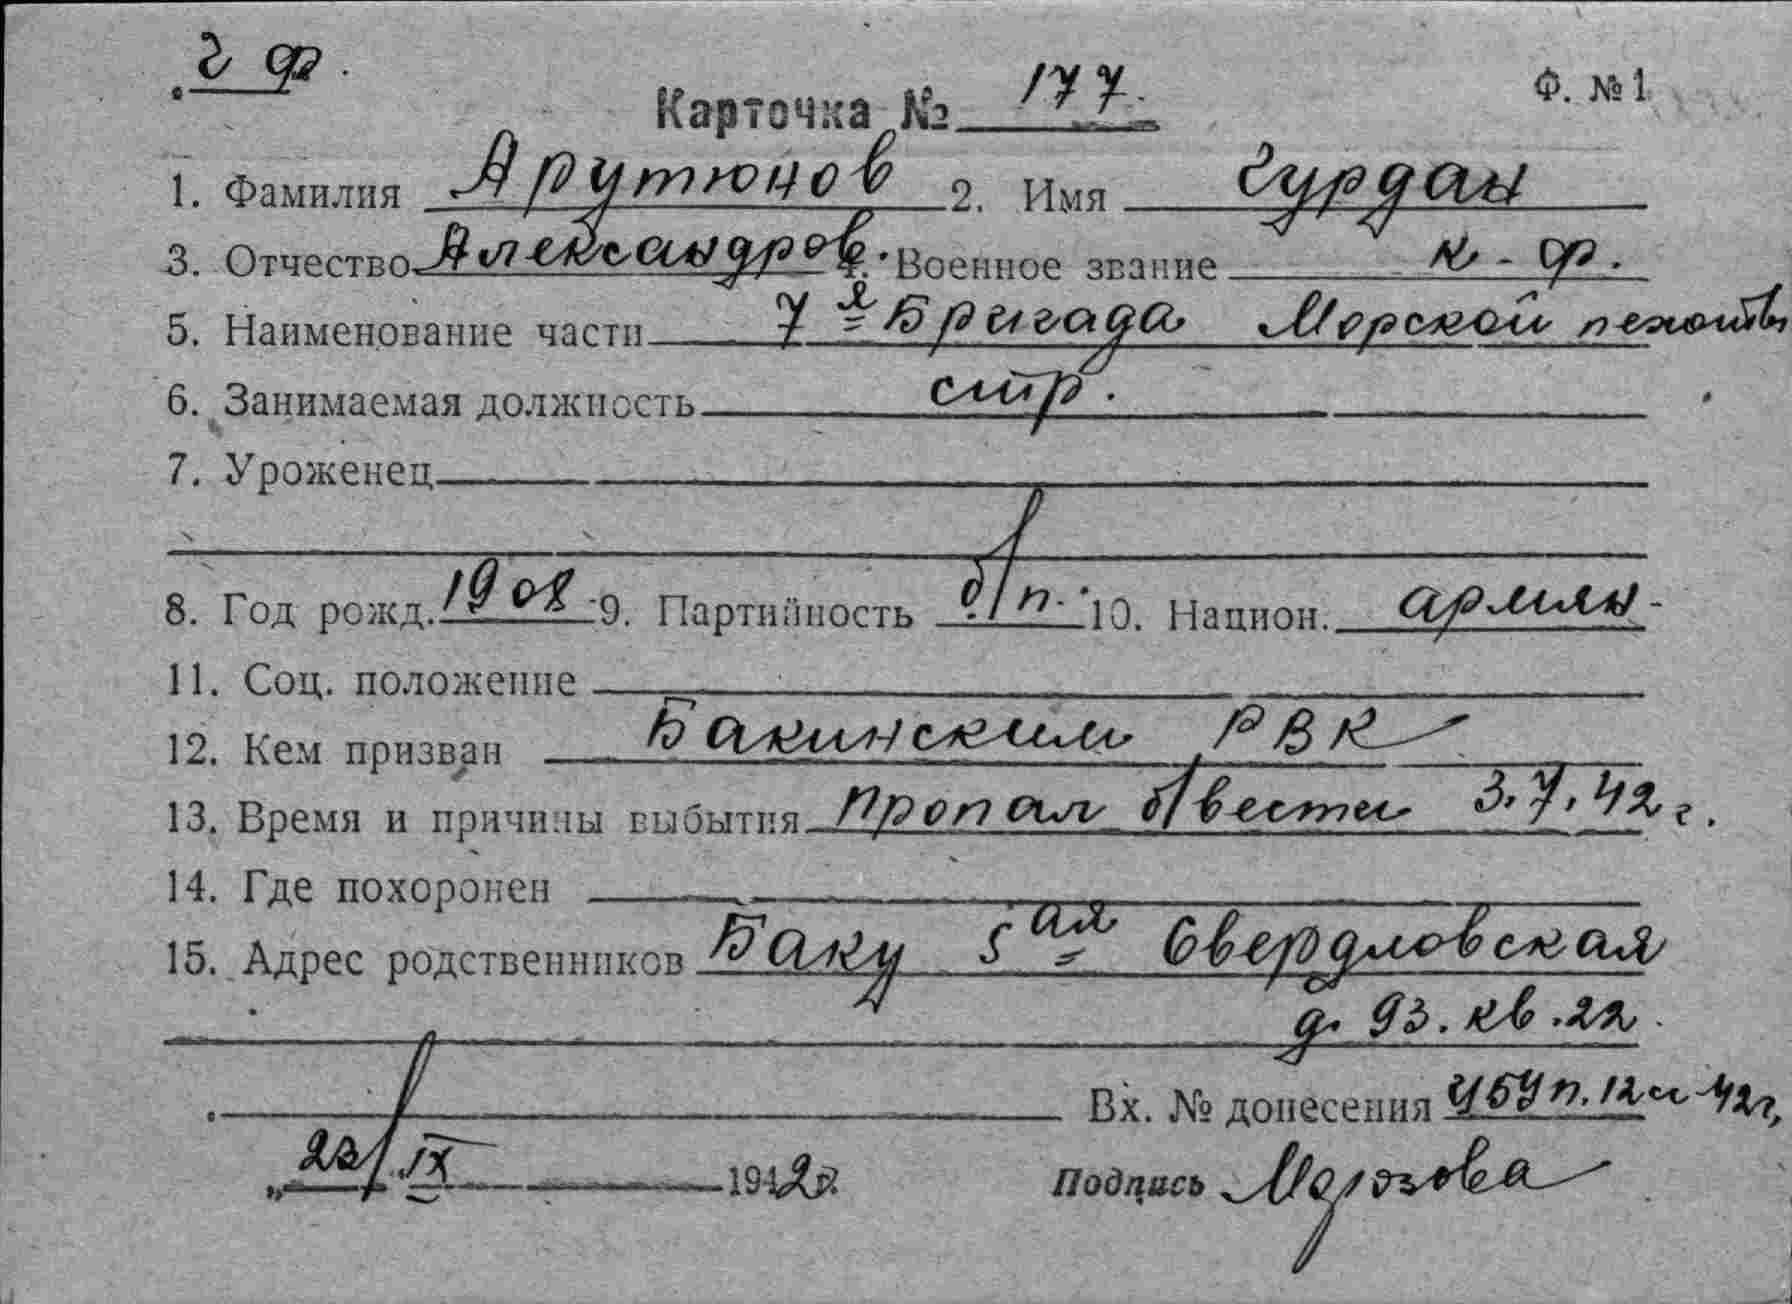 ч ф.
Карточка № 177. Ф. №1
1. Фамилия Арутюнов 2. Имя Гурдан
3. Отчество Александров. 4. Военное звание к-ф.
5. Наименование части 7я Бригада Морской пехоты
6. Занимаемая должность стр.
7. Уроженец
8. Год рожд. 1908 9. Партийность б/п. 10. Национ. армян-
11. Соц. положение
12. Кем призван Бакинским РВК
13. Время и причины выбытия пропал б/вести 3.7.42 г.
14. Где похоронен
15. Адрес родственников Баку 5ая Свердловская
д. 93. кв. 22.
Вх. № донесения 42г,
„22/IX 1942г. Подпись Морозова